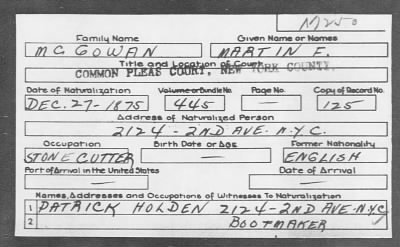 M250
Family Name Given Name or Names
MC GOWAN MARTIN F.
Title and Location of Court
COMMON PLEAS COURT, NEW YORK COUNTY.
Date of Naturalization Volume or Bundle No. Page No. Copy of Record No.
DEC. 27-1875 445 — 125
Address of Naturalized Person
2124-2ND AVE. N.Y.C.
Occupation Birth Date or Age Former Nationality
STONE CUTTER — ENGLISH
Port of Arrival in the United States Date of Arrival
— —
Names, Addresses and Occupations of Witnesses To Naturalization
1 PATRICK HOLDEN 2124-2ND AVE-N.Y.C
2 BOOTMAKER